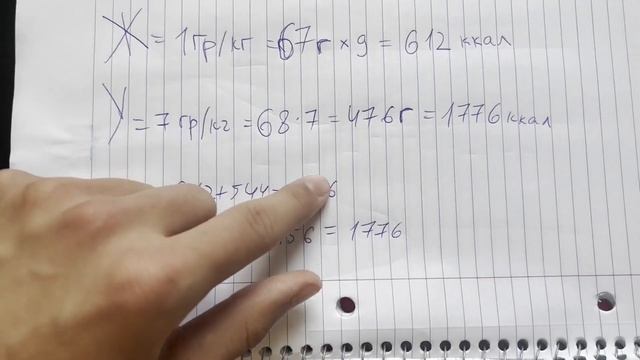 Ж = 1 гр/кг = 67г × 9 = 612 ккал
У = 7 гр/кг = 68·7 = 476г = 1776 ккал
+544
56 = 1776